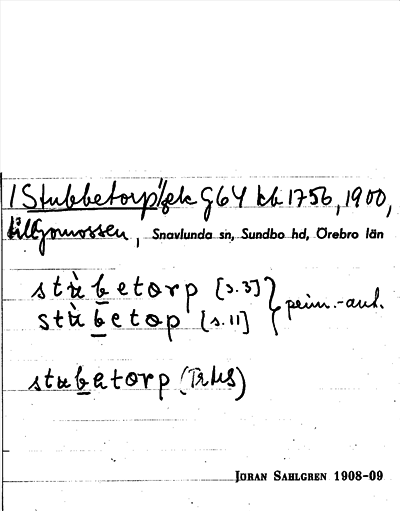 1 Stubbetorp ek G6Y kb 1756, 1900,
till Gomossen, Snavlunda sn, Sundbo hd, Örebro län
stùbetorp [s.3]
stùbetop [s.11] } peim.-auk.
stubetorp (TrMS)
JÖRAN SAHLGREN 1908-09